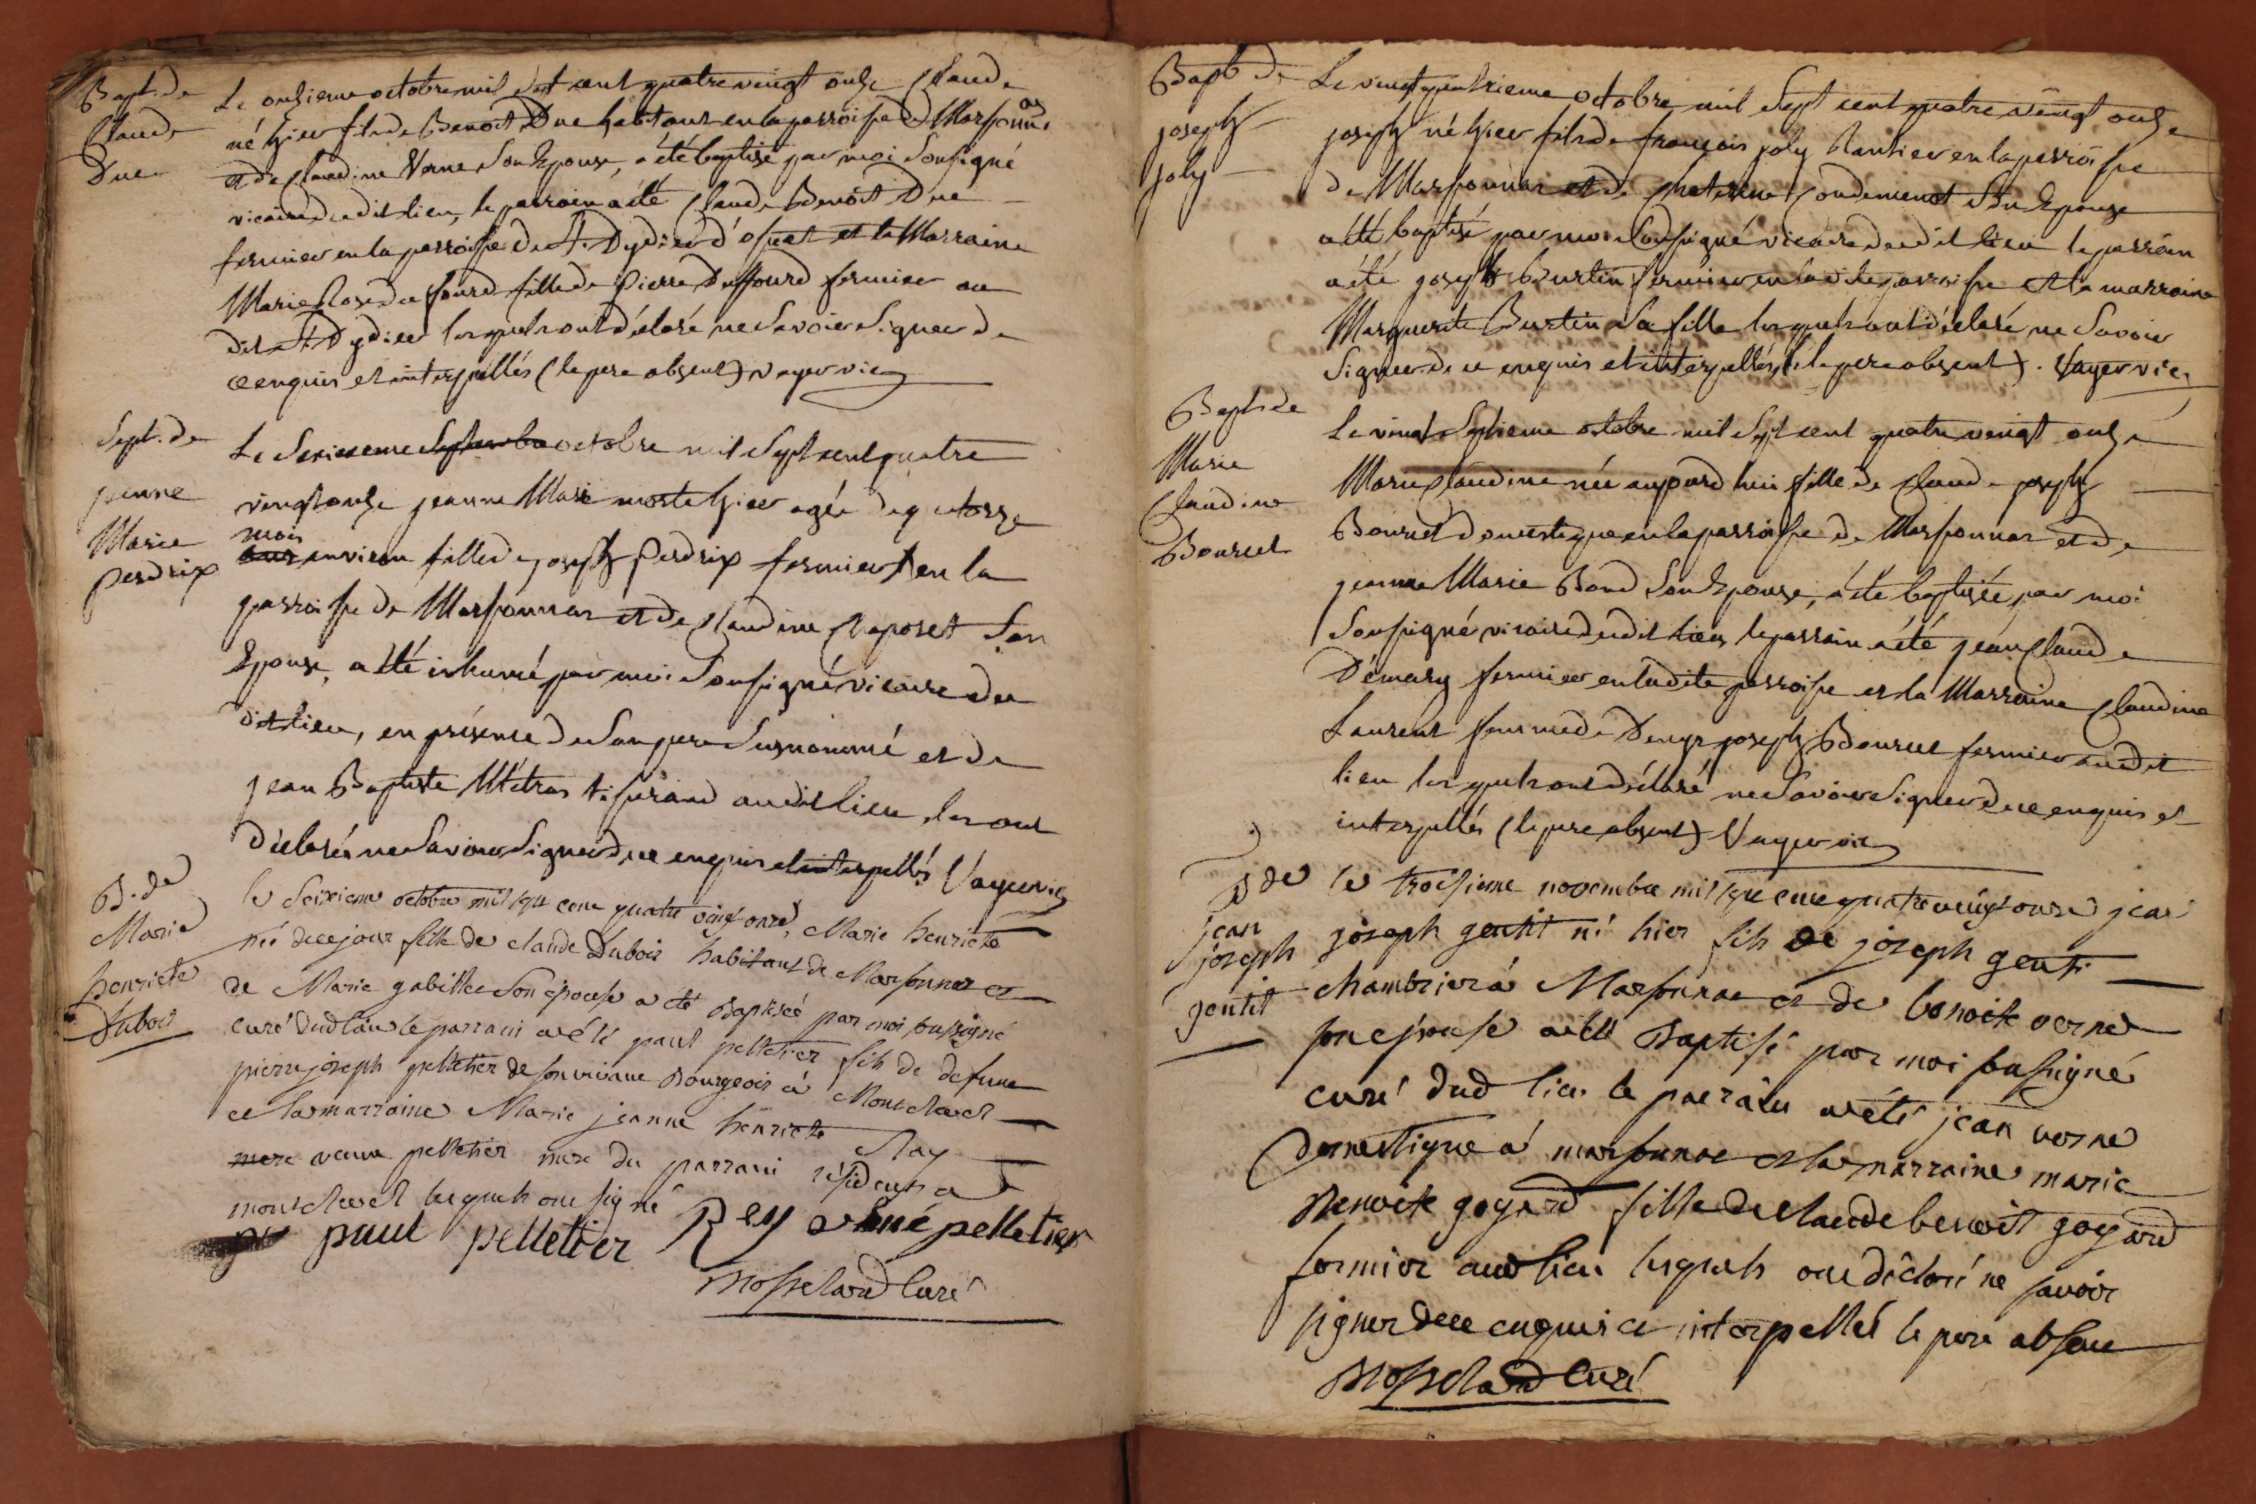 Bapt. de
Claude
Duc
Le onzieme octobre mil sept cent quatre vingt onze Claude
né hier fils de Benoit Duc habitant en la parroisse de Marsonnas
et de Claudine Verne son Epouse, a été baptisé par moi sousigné
vicaire dudit lieu, le parrain a été Claude Benoît Duc
fermier en la parroisse de St. Dydier d'
et la Marraine
Marie Rose du fourd fille de Pierre Duffourd fermier au
dit St Dydier lesquels ont déclaré ne savoir signer de
ce enquis et interpellés (le pere absent) vayer vic
Sept. de
jeanne
Marie
perdrix
Le seizieme Septembre octobre mil sept cent quatre
vingt onze jeanne Marie morte hier agée de quatorze
mois
ans environ fille de joseph Perdrix fermier en la
parroisse de Marsonnas et de Claudine Chaposet son
Epouse, a été inhumé par moi sousigné vicaire du
dit lieu, en présence de son pere susnommé et de
jean Baptiste Métras tisserand audit lieu, les ont
déclarés ne savoir signer de ce enquis et interpellés Vayer vic
B. de
Marie
henriete
Dubois
le seizieme octobre mil sept cent quatre vingt onze, Marie henriete
née de ce jour fille de claude Dubois habitant de Marsonnas et
de Marie gabillet son épouse a été Baptisée par moi sussigné
curé dud lieu le parrain a été paul pelletier fils de defunt
pierre joseph pelletier de son vivant Bourgeois à Montclavel
et la marraine Marie jeanne henriete Ray
mere veuve pelletier mere du parrain résidents a
montclavel lesquels ont signé
paul pelletier Rey veuve pelletier
Mosselard Curé
Bapt de
joseph
joly
Le vingt quatrieme octobre mil sept cent quatre vingt onze
joseph né hier fils de françois joly Rantier en la parroisse
de Marsonnas et de Chaterine Condemenet son Epouse
a été baptisé par moi sousigné vicaire dudit lieu le parrain
a été joseph burtin fermier en la dite parroisse et la marraine
Marguerite Burtin sa fille lesquels ont déclaré ne savoir
signer de ce enquis et interpellés, (le pere absent). Vayer vic,
Bapt. de
Marie
Claudine
Bourcet
Le vingt septieme octobre mil sept cent quatre vingt onze
Marie Claudine née aujourd'hui fille de Claude joseph
Bourcet domestique en la parroisse de Marsonnas et de
jeanne Marie Bond son Epouse, a été baptisée par moi
sousigné vicaire dudit lieu, le parrain a été jean Claude
Démary fermier en ladite parroisse et la Marraine Claudine
Laurent femme de Denys joseph Bourcet fermier audit
lieu lesquels ont déclaré ne savoir signer de ce enquis et
interpellés (le pere absent) Vayer vic
B de
jean
joseph
gentit
le troisieme novembre mil sept cent quatre vingt onze jean
joseph gentit né hier fils de joseph genti
chambrier à Marsonnas et de benoite verne
son épouse a été Baptisé par moi sussigné
curé dud lieu le parrain a été jean verne
Domestique à marsonnas et la marraine marie
Benoite goyard fille de claude benoit goyard
fermier aud lieu lesquels ont déclaré ne savoir
signer de ce enquis et interpellé le pere absent
Mosselard Curé